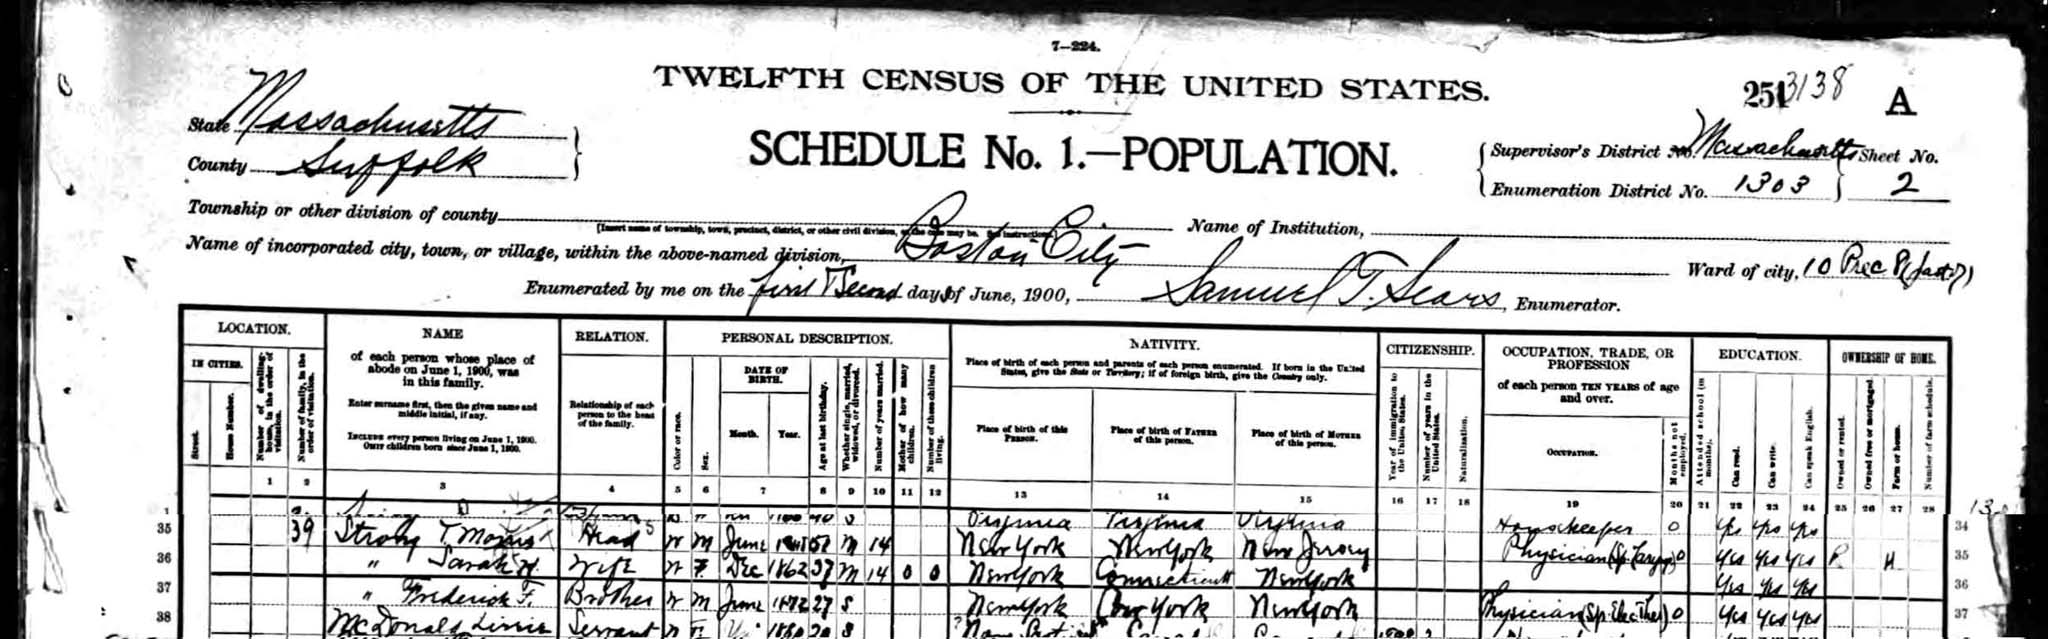 7—224.
TWELFTH CENSUS OF THE UNITED STATES.
251 3138 A
State Massachusetts
County Suffolk
SCHEDULE No. 1.—POPULATION.
Supervisor's District No. Massachusetts Sheet No.
Enumeration District No. 1303 2
Township or other division of county
[Insert name of township, town, precinct, district, or other civil division, as the case may be. See instructions.]
Name of Institution,
Name of incorporated city, town, or village, within the above-named division, Boston City
Ward of city, 10 Prec 8
Enumerated by me on the first & Second days of June, 1900, Samuel T. Sears, Enumerator.
LOCATION.
IN CITIES.
Street.
House Number.
Number of dwelling-house, in the order of visitation.
Number of family, in the order of visitation.
NAME
of each person whose place of abode on June 1, 1900, was in this family.
Enter surname first, then the given name and middle initial, if any.
INCLUDE every person living on June 1, 1900.
OMIT children born since June 1, 1900.
RELATION.
Relationship of each person to the head of the family.
PERSONAL DESCRIPTION.
Color or race.
Sex.
DATE OF BIRTH.
Month.
Year.
Age at last birthday.
Whether single, married, widowed, or divorced.
Number of years married.
Mother of how many children.
Number of these children living.
NATIVITY.
Place of birth of each person and parents of each person enumerated. If born in the United States, give the State or Territory; if of foreign birth, give the Country only.
Place of birth of this PERSON.
Place of birth of FATHER of this person.
Place of birth of MOTHER of this person.
CITIZENSHIP.
Year of immigration to the United States.
Number of years in the United States.
Naturalization.
OCCUPATION, TRADE, OR PROFESSION
of each person TEN YEARS of age and over.
OCCUPATION.
Months not employed.
EDUCATION.
Attended school (in months).
Can read.
Can write.
Can speak English.
OWNERSHIP OF HOME.
Owned or rented.
Owned free or mortgaged.
Farm or house.
Number of farm schedule.
1 2 3 4 5 6 7 8 9 10 11 12 13 14 15 16 17 18 19 20 21 22 23 24 25 26 27 28
S Virginia Virginia Virginia Housekeeper 0 yes yes yes 34
35 39 Strong T. Morris Head W M June 51 M 14 New York New York New Jersey Physician 0 yes yes yes R H 35
36 " Sarah H. Wife W F Dec 1862 37 M 14 0 0 New York Connecticut New York yes yes yes 36
37 " Frederick F. Brother W M June 1872 27 S New York New York New York Physician 0 yes yes yes 37
38 McDonald Servant